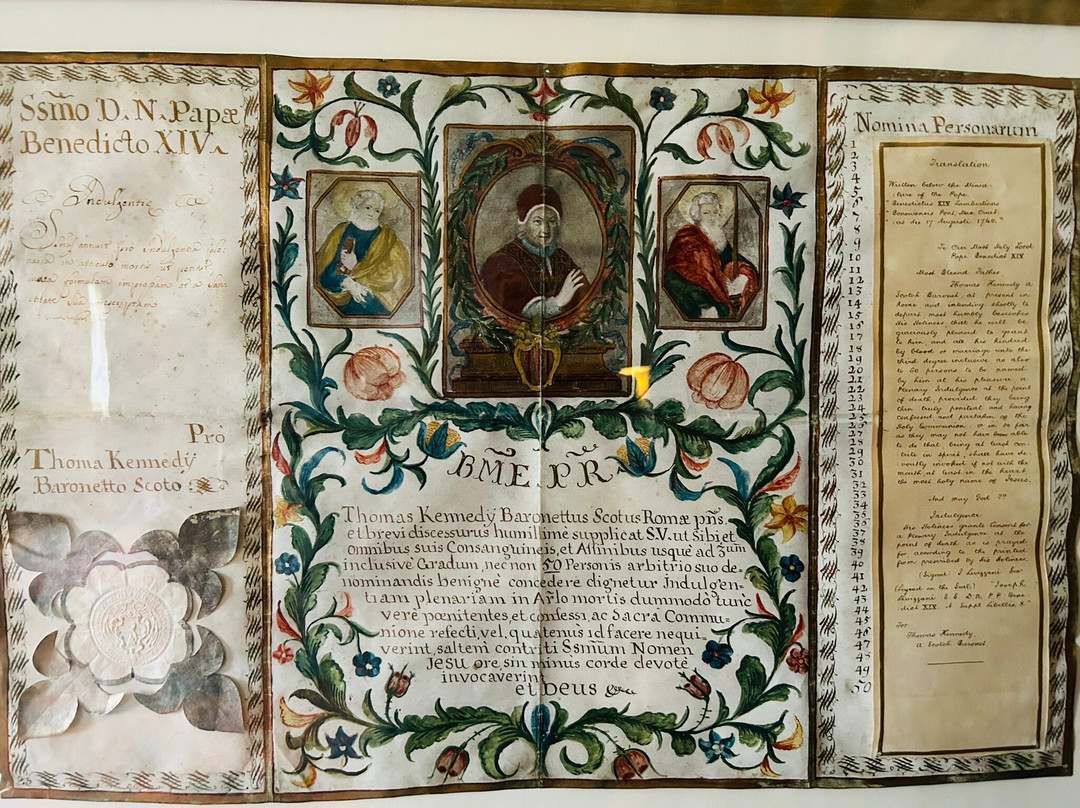 Ssm̃o D. N. Papæ
Benedicto XIV.
Indulgentiæ
Pro
Thoma Kennedÿ
Baronetto Scoto
BM̃E. PR̃
Thomas Kennedÿ Baronettus Scotus Romæ pñs.
et brevi discessurus humilimè supplicat S.V. ut sibi et
omnibus suis Consanguineis, et Affinibus usquè ad 3.um
inclusivè Gradum, nec non 50 Personis arbitrio suo de=
nominandis benignè concedere dignetur Jndulgen=
tiam plenariam in Ar̃lo mortis dummodò tunc
verè pœnitentes, et confessi, ac Sacra Commu=
nione refecti, vel, quatenus id facere nequi=
verint, saltem contriti Ssm̃um Nomen
Jesu ore, sin minus corde devotè
invocaverint
et Deus
Nomina Personarum
1
2
3
4
5
6
7
8
9
10
11
12
13
14
15
16
17
18
19
20
21
22
23
24
25
26
27
28
29
30
31
32
33
34
35
36
37
38
39
40
41
42
43
44
45
46
47
48
49
50
Translation
Written below the Minia=
ture of the Pope.
Benedictus XIV
17 Augusti 1740.
To Our Most Holy Lord
Pope Benedict XIV
Most Blessed Father
Thomas Kennedy a
Scotch Baronet, at present in
Rome and intending shortly to
depart most humbly beseeches
His Holiness that he will be
graciously pleased to grant
to him, and all his kindred
by blood or marriage unto the
third degree inclusive, as also
to 50 persons to be named
by him at his pleasure a
Plenary Indulgence at the point
of death, provided they being
then truly penitent and having
confessed and partaken of the
Holy Communion, or in so far
as they may not have been able
to do that, being at least con=
trite in spirit, shall have de=
voutly invoked if not with the
mouth, at least in the heart
the most holy name of Jesus.
And may God ??
Indulgence
His Holiness grants Consent for
a Plenary Indulgence at the
point of death, as is prayed
for according to the printed
form prescribed by His Holiness.
For
Thomas Kennedy,
A Scotch Baronet